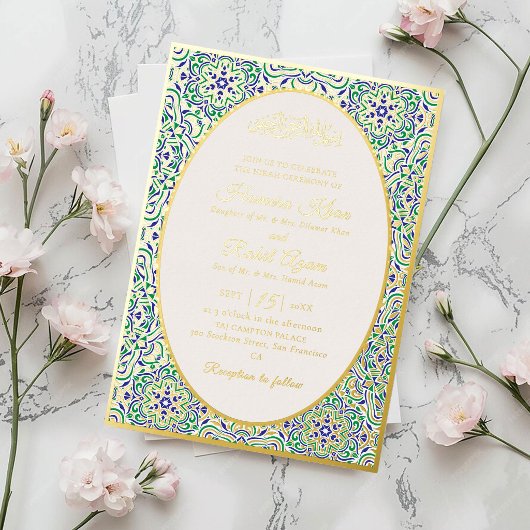 JOIN US TO CELEBRATE
THE NIKAH CEREMONY OF
Khan
Daughter of Mr. & Mrs. Dilawar Khan
and
Rahil Azam
Son of Mr. & Mrs. Hamid Azam
SEPT | 15 | 20XX
at 3 o'clock in the afternoon
TAJ CAMPTON PALACE
500 Stockton Street, San Francisco
CA
Reception to follow